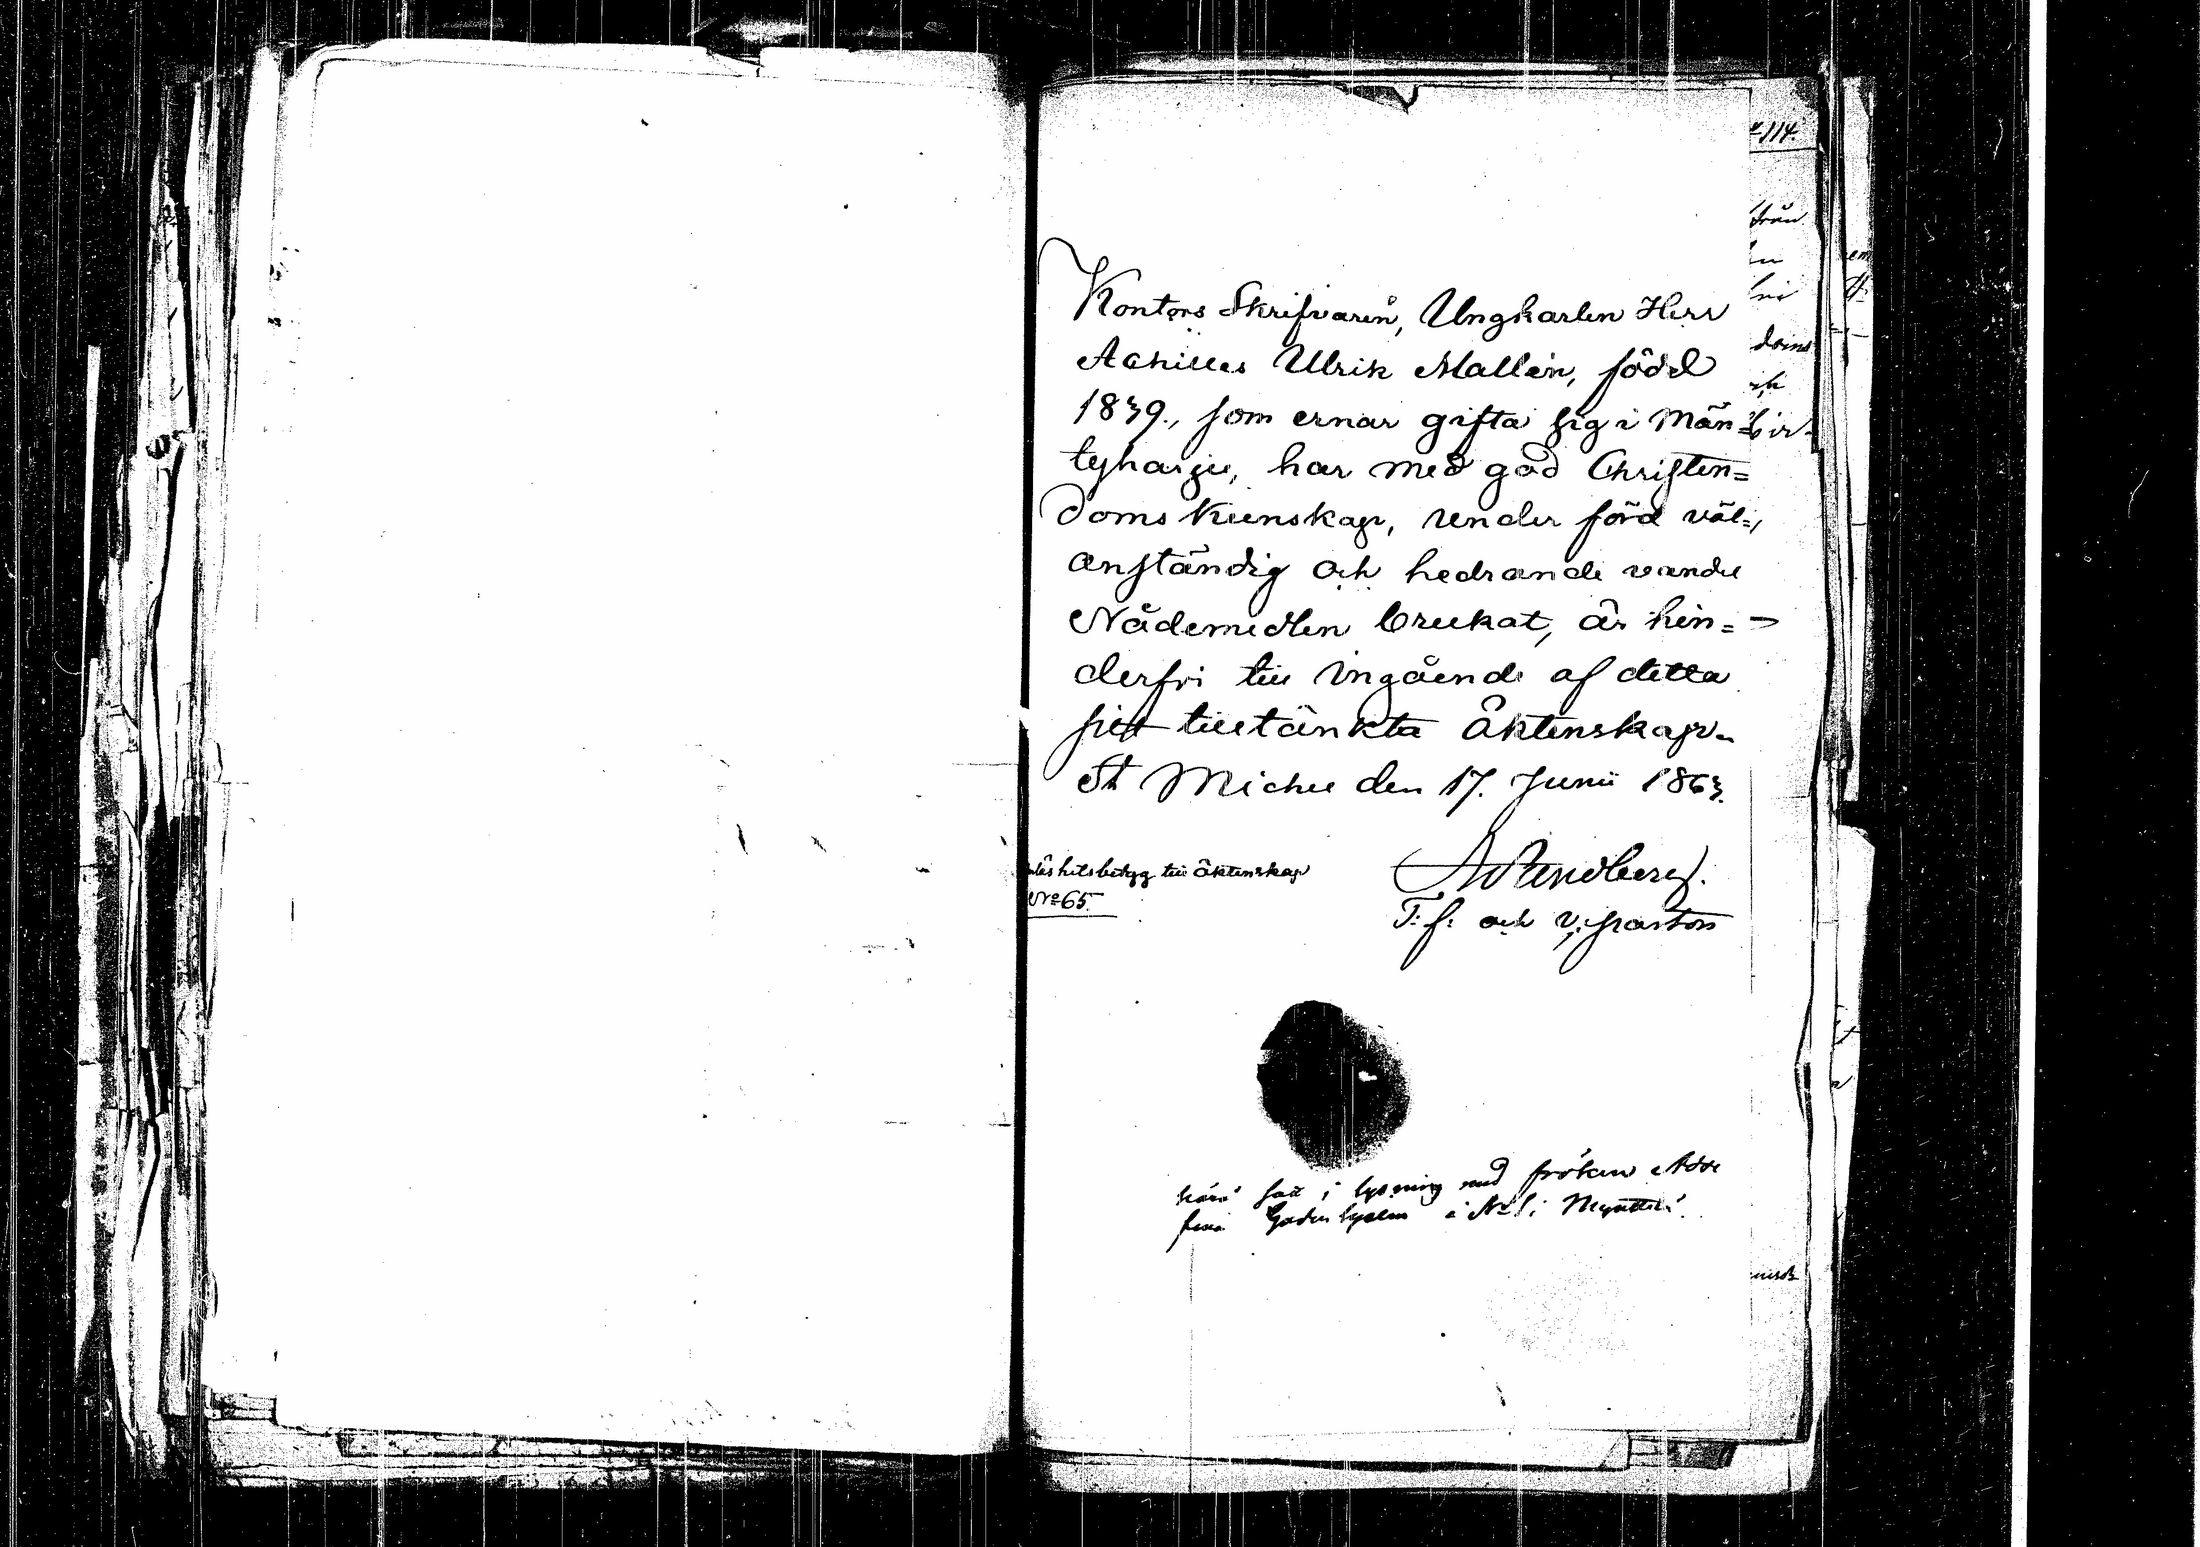 Kontors Skrifvaren, Ungkarlen Herr
Achilles Ulrik Mallén, född
1839., som ernar gifta sig i Män=
tyharju, har med god Christen=
doms kunskap, under förd väl=
anständig och hedrande vandel
Nådemedlen brukat, är hin=
derfri till ingående af detta
sitt tilltänkta Äktenskap.
St Michel den 17. Junii 1863.
hetsbetyg till Äktenskap
No 65.
T: f: och v: pastor
i lysning med fröken
i No 1 i
114.